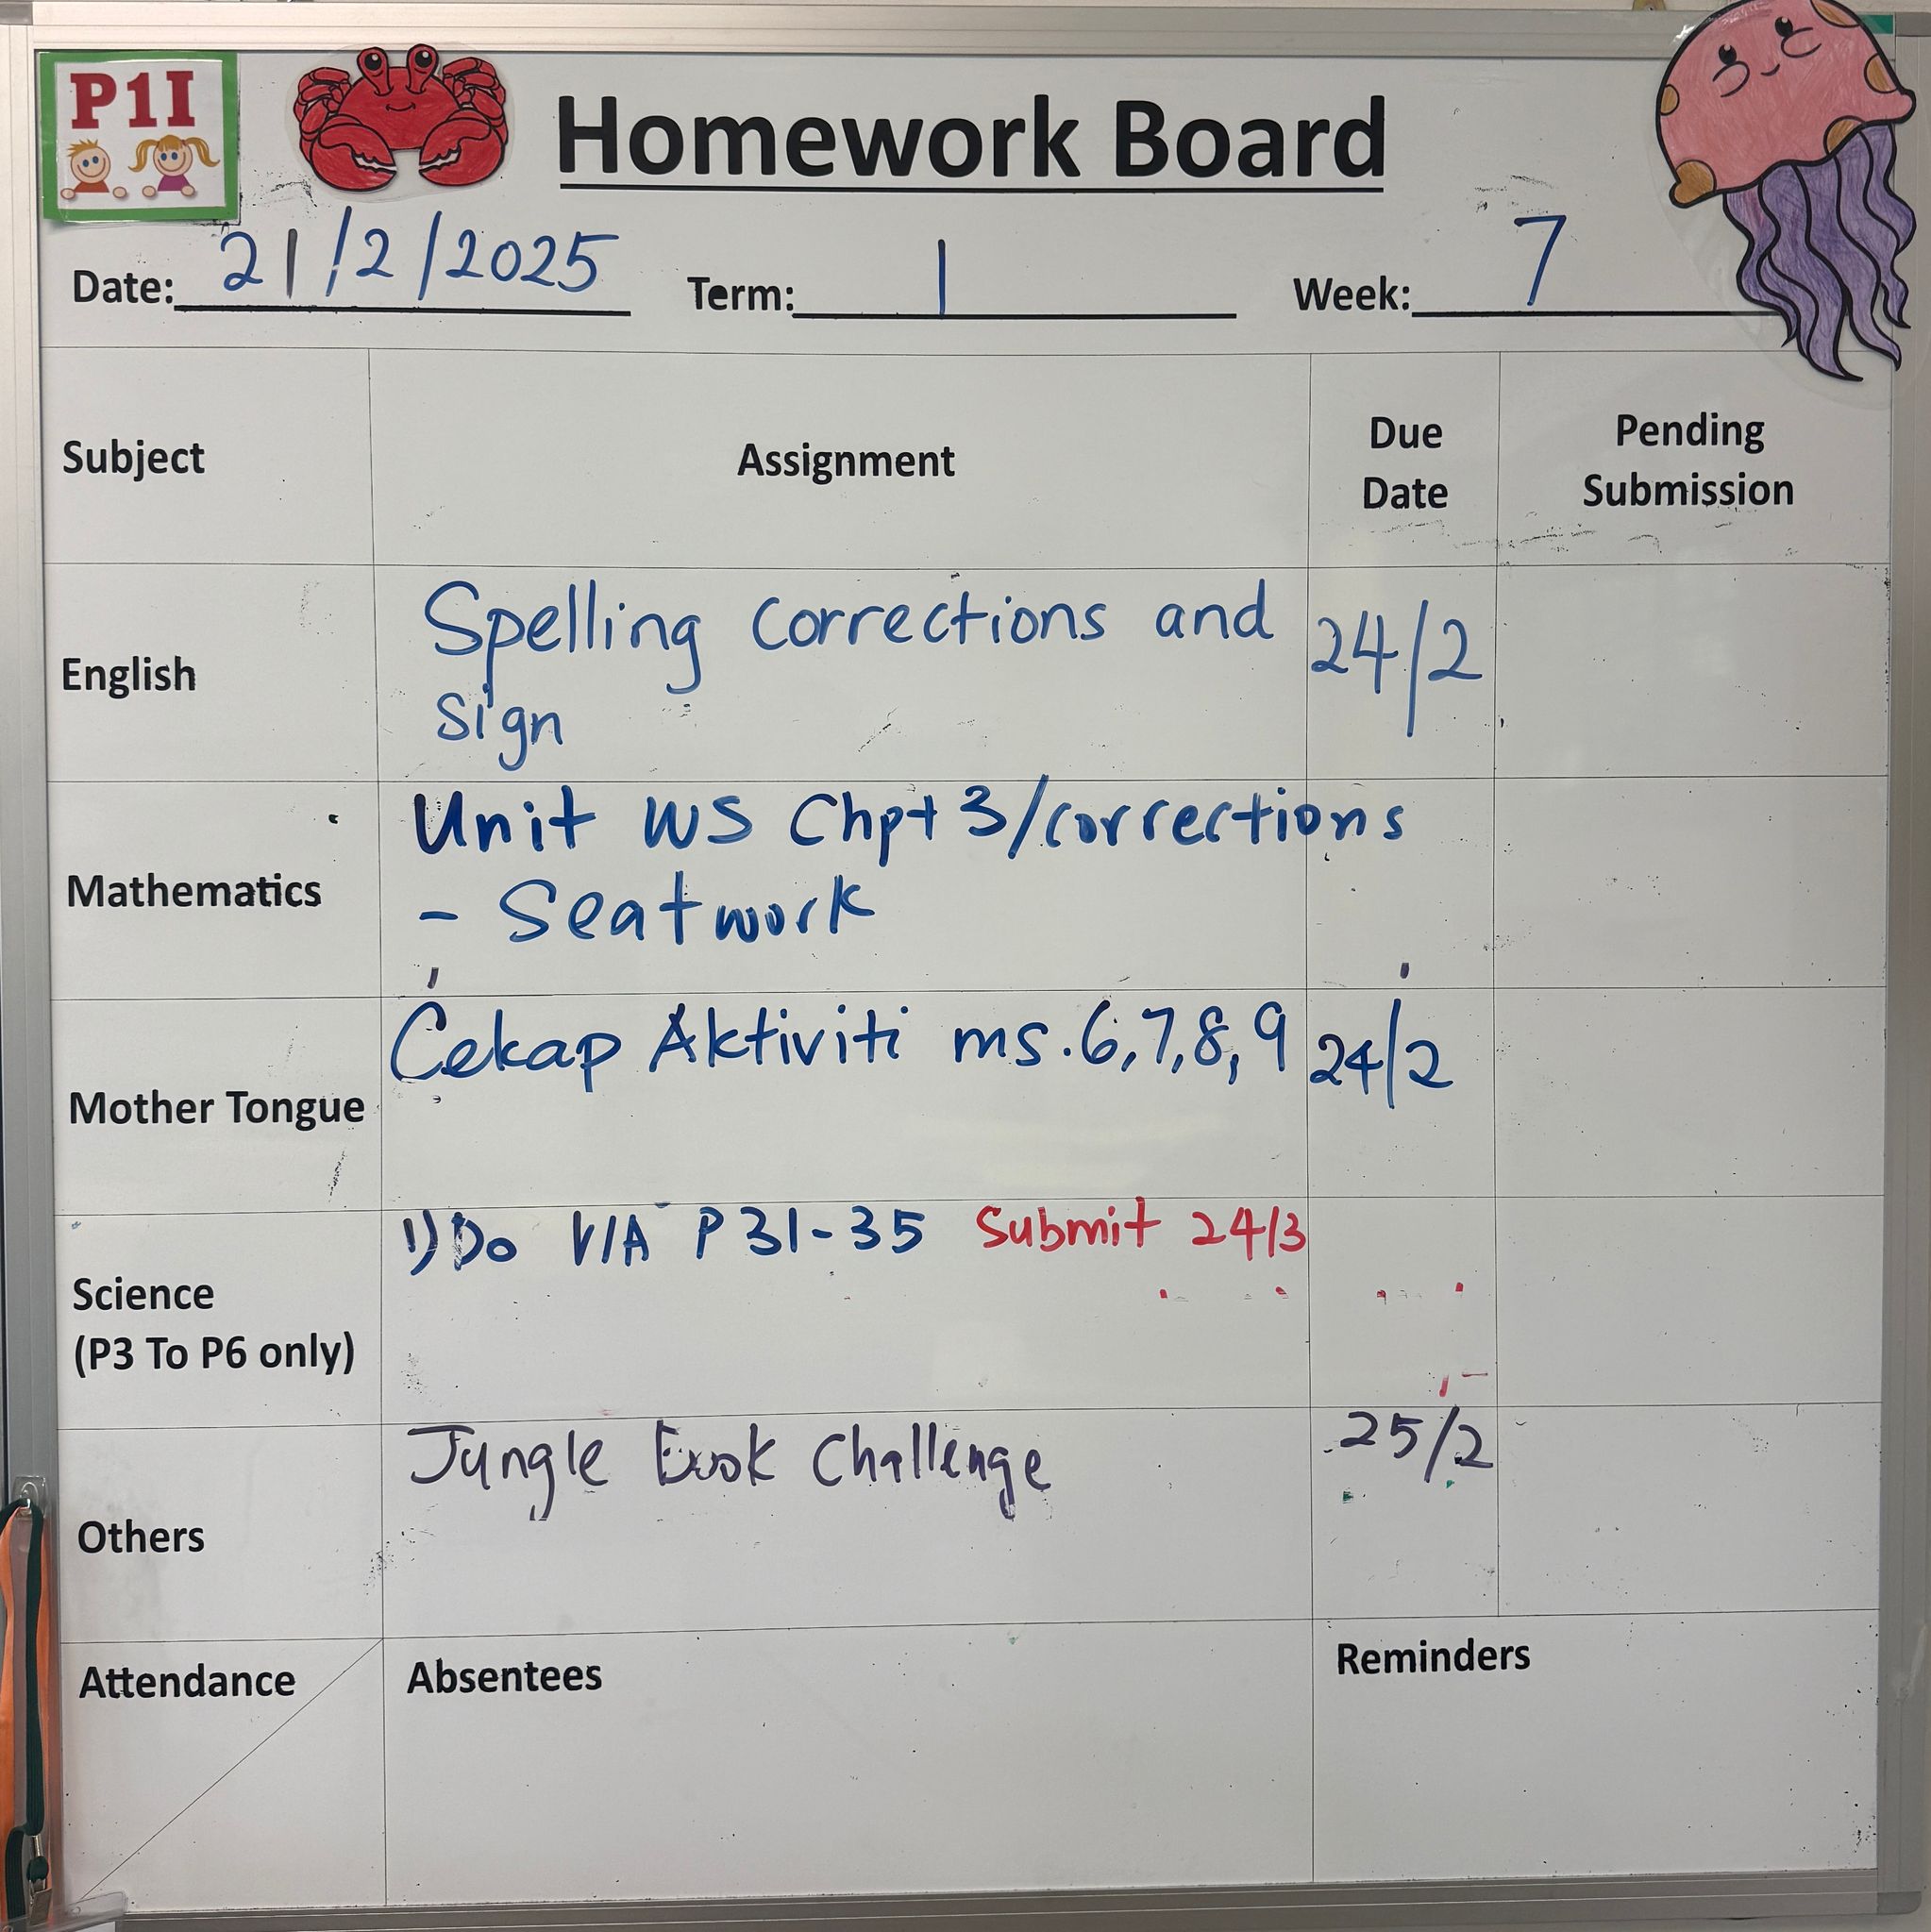 P1I
Homework Board
Date: 21/2/2025 Term: 1 Week: 7
Subject Assignment Due Date Pending Submission
English Spelling corrections and sign 24/2
Mathematics Unit WS Chpt 3/corrections
- Seatwork
Mother Tongue Cekap Aktiviti ms.6,7,8,9 24/2
Science (P3 To P6 only) 1) Do V/A P 31-35 Submit 24/3
Others Jungle Book Challenge 25/2
Attendance Absentees Reminders